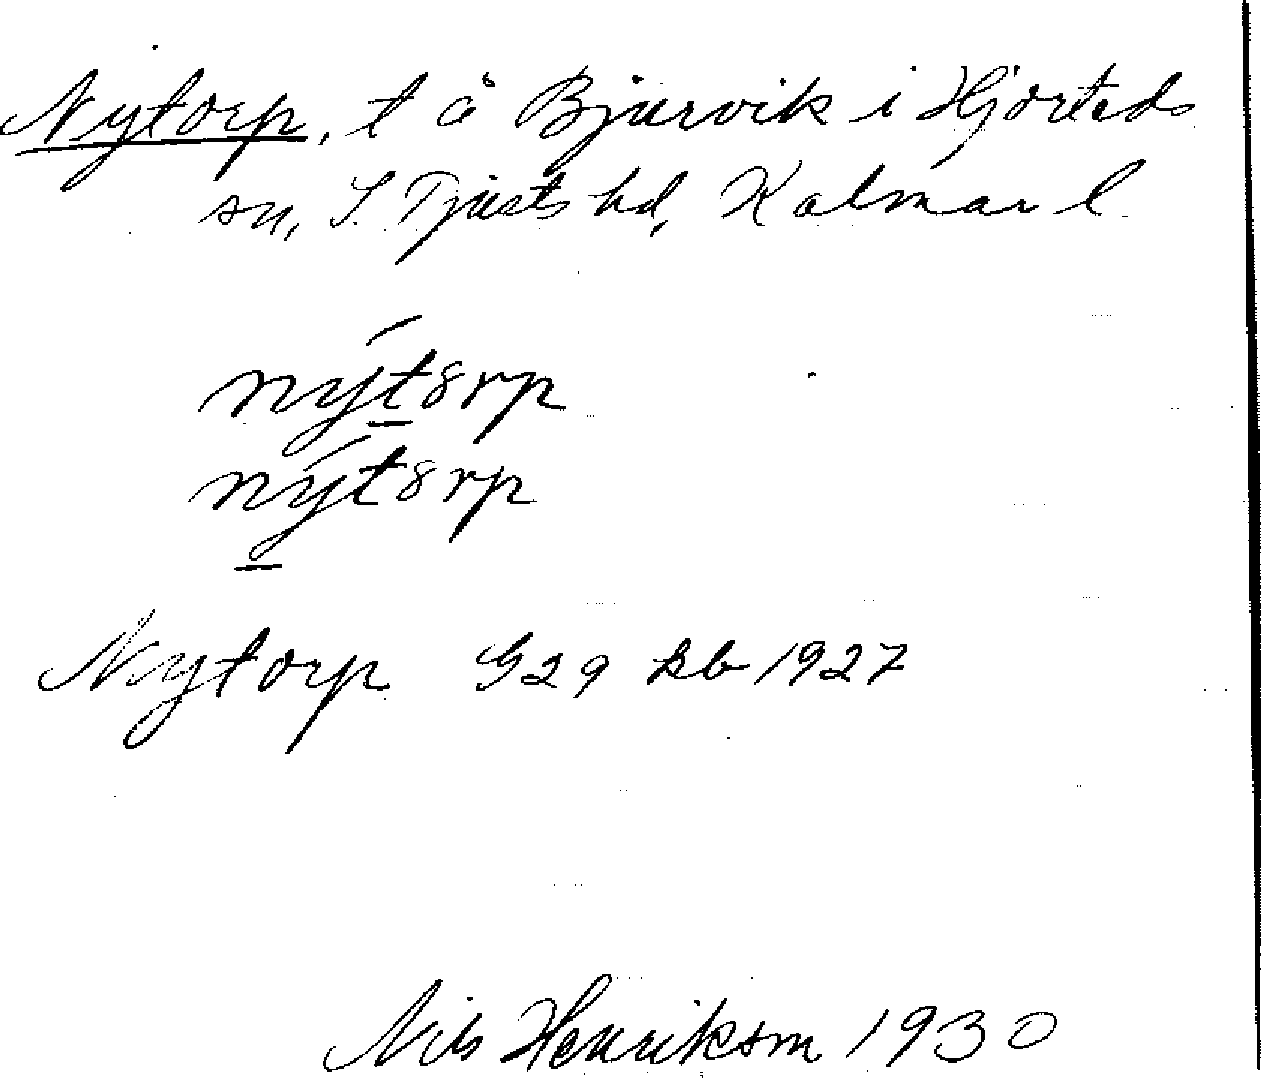 Nytorp, t å Bjurvik i Hjorteds
sn, S. Tjusts hd, Kalmar l.
nýt8rp
nýt8rp
Nytorp G29 kb 1927
Nils Henrikson 1930